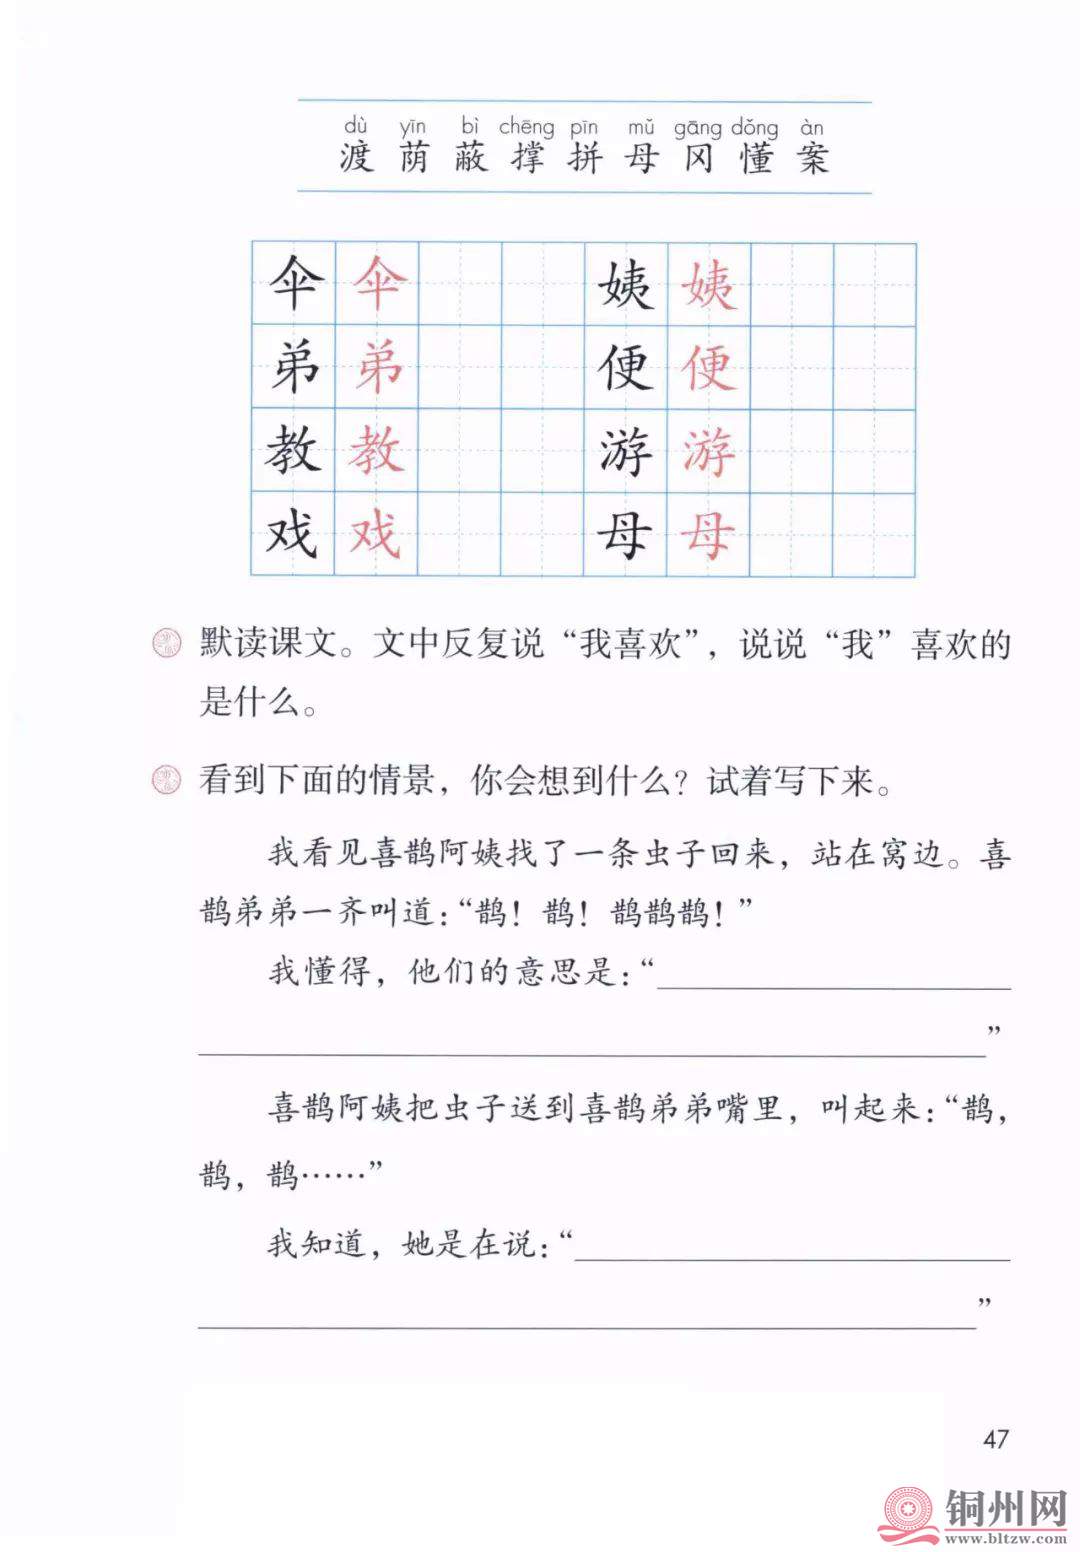 dù yīn bì chēng pīn mǔ gāng dǒng àn
渡 荫 蔽 撑 拼 母 冈 懂 案
伞 伞 姨 姨
弟 弟 便 便
教 教 游 游
戏 戏 母 母
默读课文。文中反复说“我喜欢”，说说“我”喜欢的
是什么。
看到下面的情景，你会想到什么？试着写下来。
我看见喜鹊阿姨找了一条虫子回来，站在窝边。喜
鹊弟弟一齐叫道：“鹊！鹊！鹊鹊鹊！”
我懂得，他们的意思是：“
”
喜鹊阿姨把虫子送到喜鹊弟弟嘴里，叫起来：“鹊，
鹊，鹊……”
我知道，她是在说：“
”
47
铜州网
www.bltzw.com